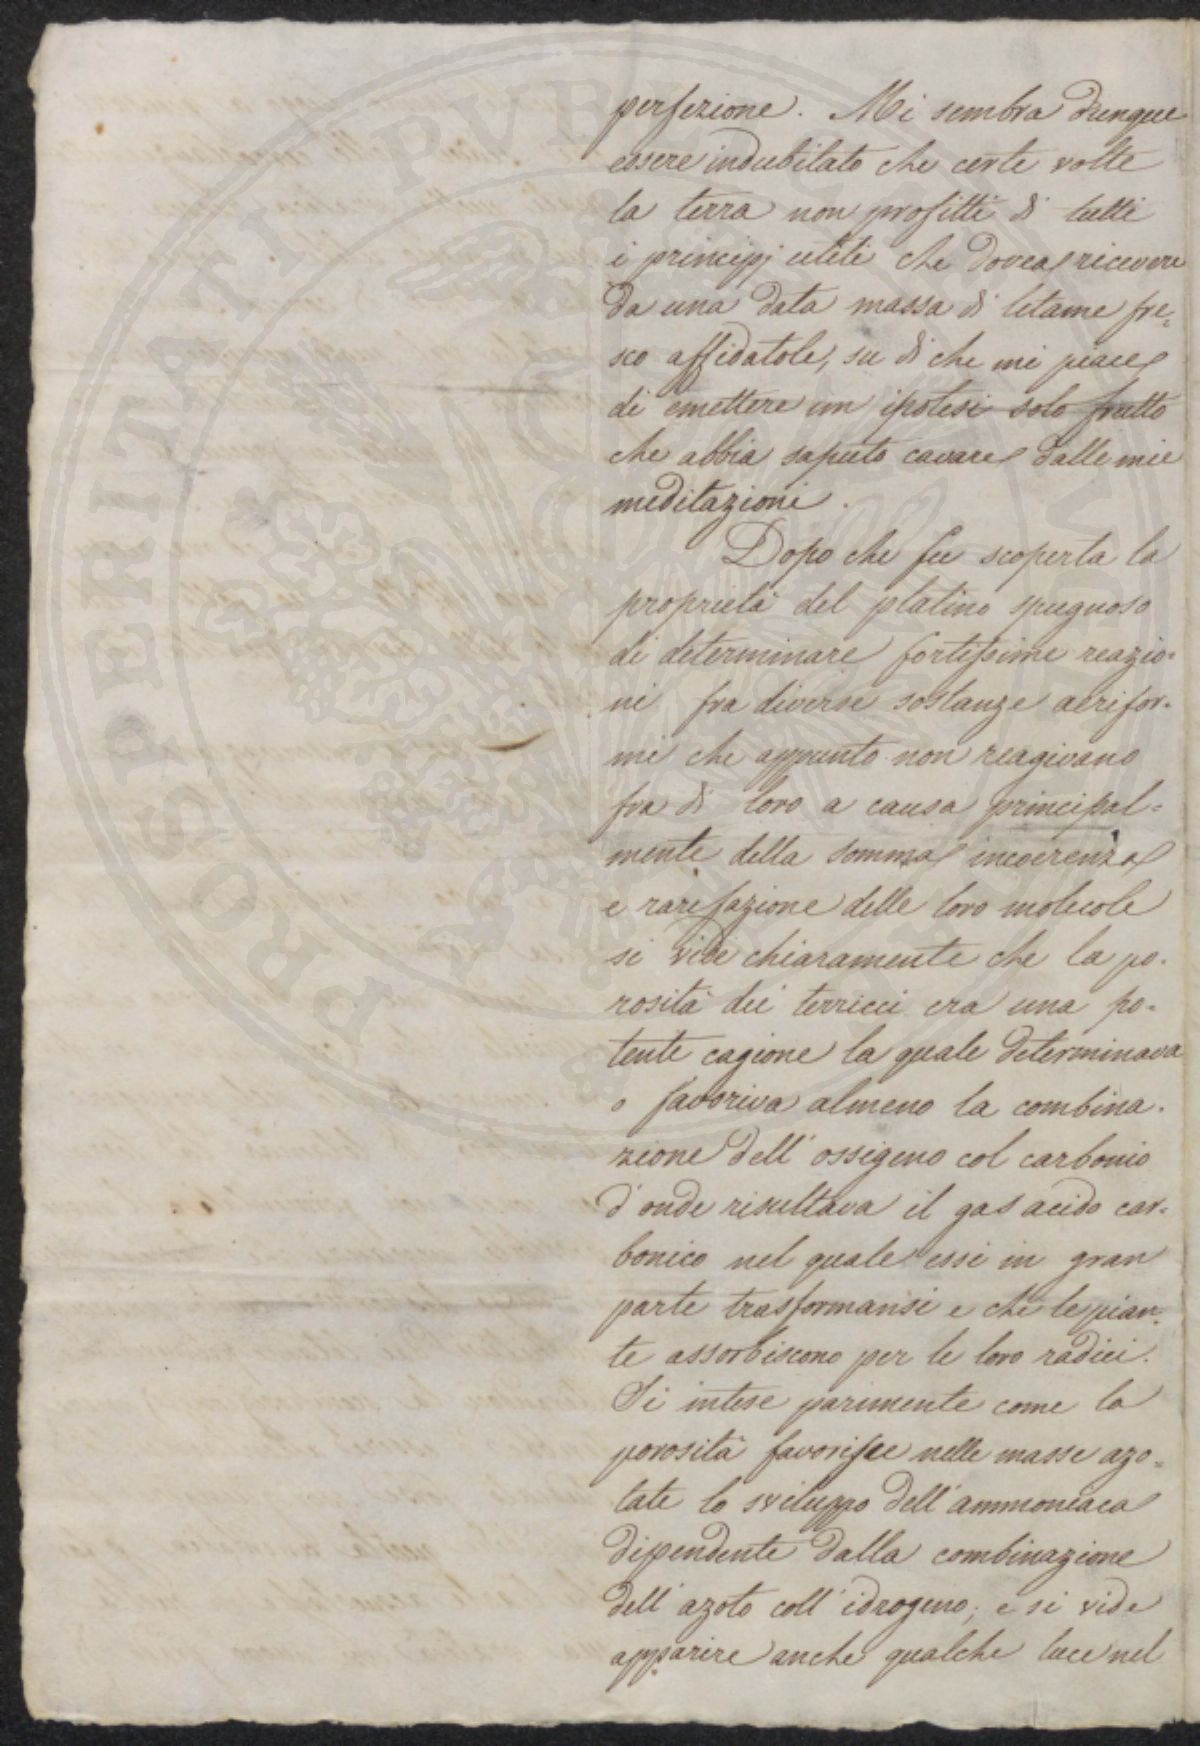 perfezione. Mi sembra dunque
essere indubitato che certe volte
la terra non profitti di tutti
i principj utili che dovea ricevere
da una data massa di letame fre=
sco affidatole, su di che mi piace
di emettere un ipotesi solo frutto
che abbia saputo cavare dalle mie
meditazioni.
Dopo che fu scoperta la
proprietà del platino spugnoso
di determinare fortissime reazio=
ni fra diverse sostanze aerifor=
mi che appunto non reagivano
fra di loro a causa principal=
mente della somma incoerenza
e rarefazione delle loro molecole
si vide chiaramente che la po=
rosità dei terricci era una po=
tente cagione la quale determinava
o favoriva almeno la combina=
zione dell'ossigeno col carbonio
d'onde risultava il gas acido car=
bonico nel quale essi in gran
parte trasformansi e che le pian=
te assorbiscono per le loro radici.
Si intese parimente come la
porosità favorisce nelle masse azo=
tate lo sviluppo dell'ammoniaca
dipendente dalla combinazione
dell'azoto coll'idrogeno; e si vide
apparire anche qualche luce nel
PROSPERITATI